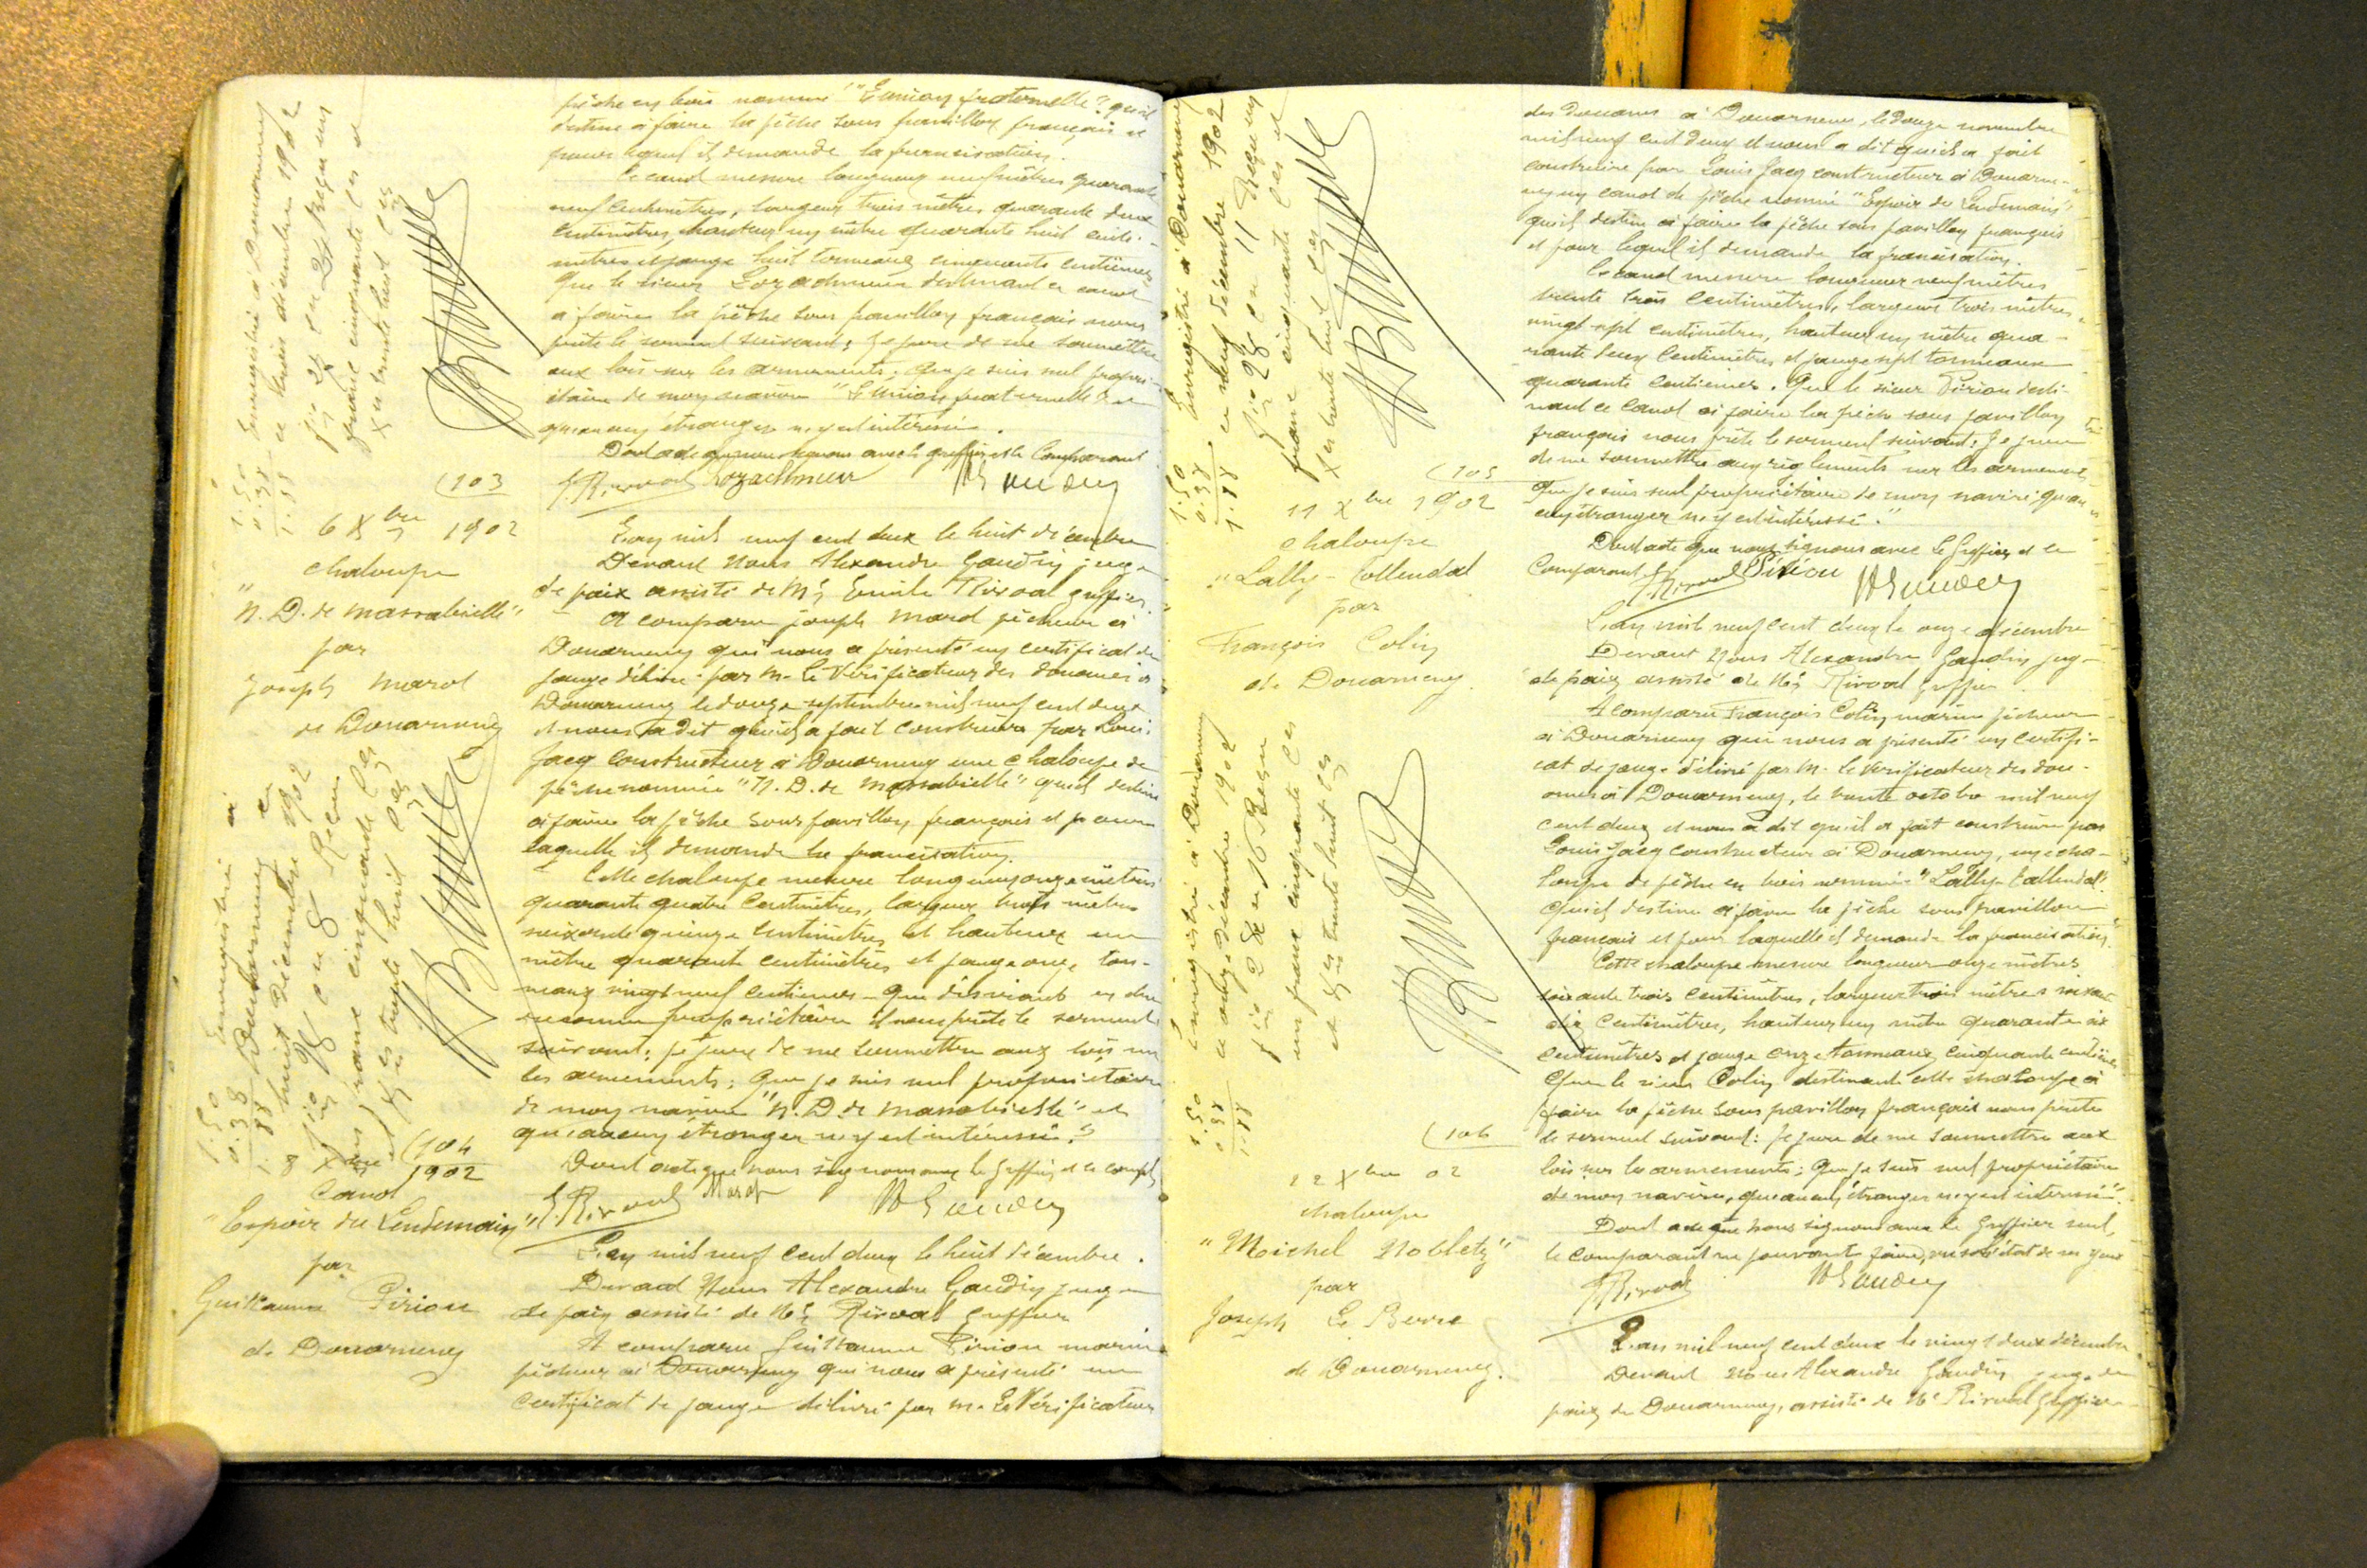 pêche en bois nommé "L'union fraternelle" qu'il
destine à faire la pêche sous pavillon français et
pour lequel il demande la francisation.
Ce canot mesure longueur neuf mètres quarante
neuf centimètres, largeur trois mètres quarante deux
centimètres, hauteur un mètre quarante huit centi-
mètres et jauge huit tonneaux cinquante centièmes
Que le sieur Lozachmeur destinant ce canot
à faire la pêche sous pavillon français nous
prête le serment suivant: Je jure de me soumettre
aux lois sur les armements; que je suis seul propri-
étaire de mon navire "L'union fraternelle" et
qu'aucun étranger n'y est intéressé.
Dont acte que nous signons avec le greffier et le comparant
E. Rivoal Lozachmeur A Gaudin
Enregistré à Douarnenez
ce trois décembre 1902
fo 28 en Reçu un
franc cinquante ces et
Xes trente huit ces
1.50
0.38
1.88
103
6 Xbre 1902
chaloupe
"N. D. de Massabielle"
par
Joseph Marol
de Douarnenez
L'an mil neuf cent deux le huit décembre
Devant Nous Alexandre Gaudin juge
de paix assisté de Me Emile Rivoal greffier.
A comparu Joseph Marol pêcheur à
Douarnenez qui nous a présenté un certificat de
jauge délivré par M. le Vérificateur des douanes à
Douarnenez le douze septembre mil neuf cent deux
et nous a dit qu'il a fait construire par Louis
Jacq constructeur à Douarnenez une chaloupe de
pêche nommée "N. D. de Massabielle" qu'il destine
à faire la pêche sous pavillon français et pour
laquelle il demande la francisation.
Cette chaloupe mesure longueur onze mètres
quarante quatre centimètres, largeur trois mètres
soixante quinze centimètres et hauteur un
mètre quarante centimètres et jauge onze ton-
neaux vingt neuf centièmes - Que désirant en être
reconnu propriétaire il nous prête le serment
suivant: Je jure de me soumettre aux lois sur
les armements; que je suis seul propriétaire
de mon navire "N. D. de Massabielle" et
qu'aucun étranger n'y est intéressé."
Dont acte que nous signons avec le greffier et le compt
E. Rivoal Marol A Gaudin
Enregistré à
Douarnenez ce
huit décembre 1902
fo 28 en 8 Reçu
un franc cinquante ces
et Xes trente huit ces
1.50
0.38
1.88
104
8 Xbre 1902
Canot
"Espoir du Lendemain"
par
Guillaume Pirion
de Douarnenez
L'an mil neuf cent deux le huit décembre.
Devant Nous Alexandre Gaudin juge
de paix assisté de Me Rivoal greffier
A comparu Guillaume Pirion marin
pêcheur à Douarnenez qui nous a présenté un
certificat de jauge délivré par M. Le Vérificateur
des Douanes à Douarnenez, le douze novembre
mil neuf cent deux et nous a dit qu'il a fait
construire par Louis Jacq constructeur à Douarne-
nez un canot de pêche nommé "Espoir du Lendemain"
qu'il destine à faire la pêche sous pavillon français
et pour lequel il demande la francisation.
Ce canot mesure longueur neuf mètres
trente trois centimètres, largeur trois mètres
vingt sept centimètres, hauteur un mètre qua-
rante deux centimètres et jauge sept tonneaux
quarante centièmes. Que le sieur Pirion desti-
nant ce canot à faire la pêche sous pavillon
français nous prête le serment suivant; Je jure
de me soumettre aux règlements sur les armements
Que je suis seul propriétaire de mon navire qu'au-
cun étranger n'y est intéressé."
Dont acte que nous signons avec le greffier et le
comparant. E. Rivoal Pirion A Gaudin
Enregistré à Douarnenez
ce neuf décembre 1902
fo 28 en 11 Reçu un
franc cinquante ces et
Xes trente huit ces
1.50
0.38
1.88
105
11 Xbre 1902
chaloupe
"Lally-Tollendal
par
François Colin
de Douarnenez
L'an mil neuf cent deux le onze décembre
Devant Nous Alexandre Gaudin juge
de paix assisté de Me Rivoal greffier.
A comparu François Colin marin pêcheur
à Douarnenez qui nous a présenté un certifi-
cat de jauge délivré par M. le Vérificateur des dou-
anes à Douarnenez, le trente octobre mil neuf
cent deux et nous a dit qu'il a fait construire par
Louis Jacq constructeur à Douarnenez, une cha-
loupe de pêche en bois nommée "Lally-Tallendal".
Qu'il destine à faire la pêche sous pavillon
français et pour laquelle il demande la francisation.
Cette chaloupe mesure longueur onze mètres
soixante trois centimètres, largeur trois mètres soixante
dix centimètres, hauteur un mètre quarante six
centimètres et jauge onze tonneaux cinquante centièmes
Que le sieur Colin destinant cette chaloupe à
faire la pêche sous pavillon français nous prête
le serment suivant: Je jure de me soumettre aux
lois sur les armements; Que je suis seul propriétaire
de mon navire, qu'aucun étranger n'y est intéressé".
Dont acte que nous signons avec le Greffier seul,
le comparant ne pouvant faire, vu l'état de ses yeux
E. Rivoal A Gaudin
Enregistré à Douarnenez
ce onze décembre 1902
fo 28 en 16 Reçu
un franc cinquante ces
et Xes trente huit ces
1.50
0.38
1.88
106
22 Xbre 02
chaloupe
"Moichel Nobletz"
par
Joseph Le Berre
de Douarnenez.
L'an mil neuf cent deux le vingt deux décembre
Devant Nous Alexandre Gaudin juge de
paix de Douarnenez, assisté de Me Rivoal greffier